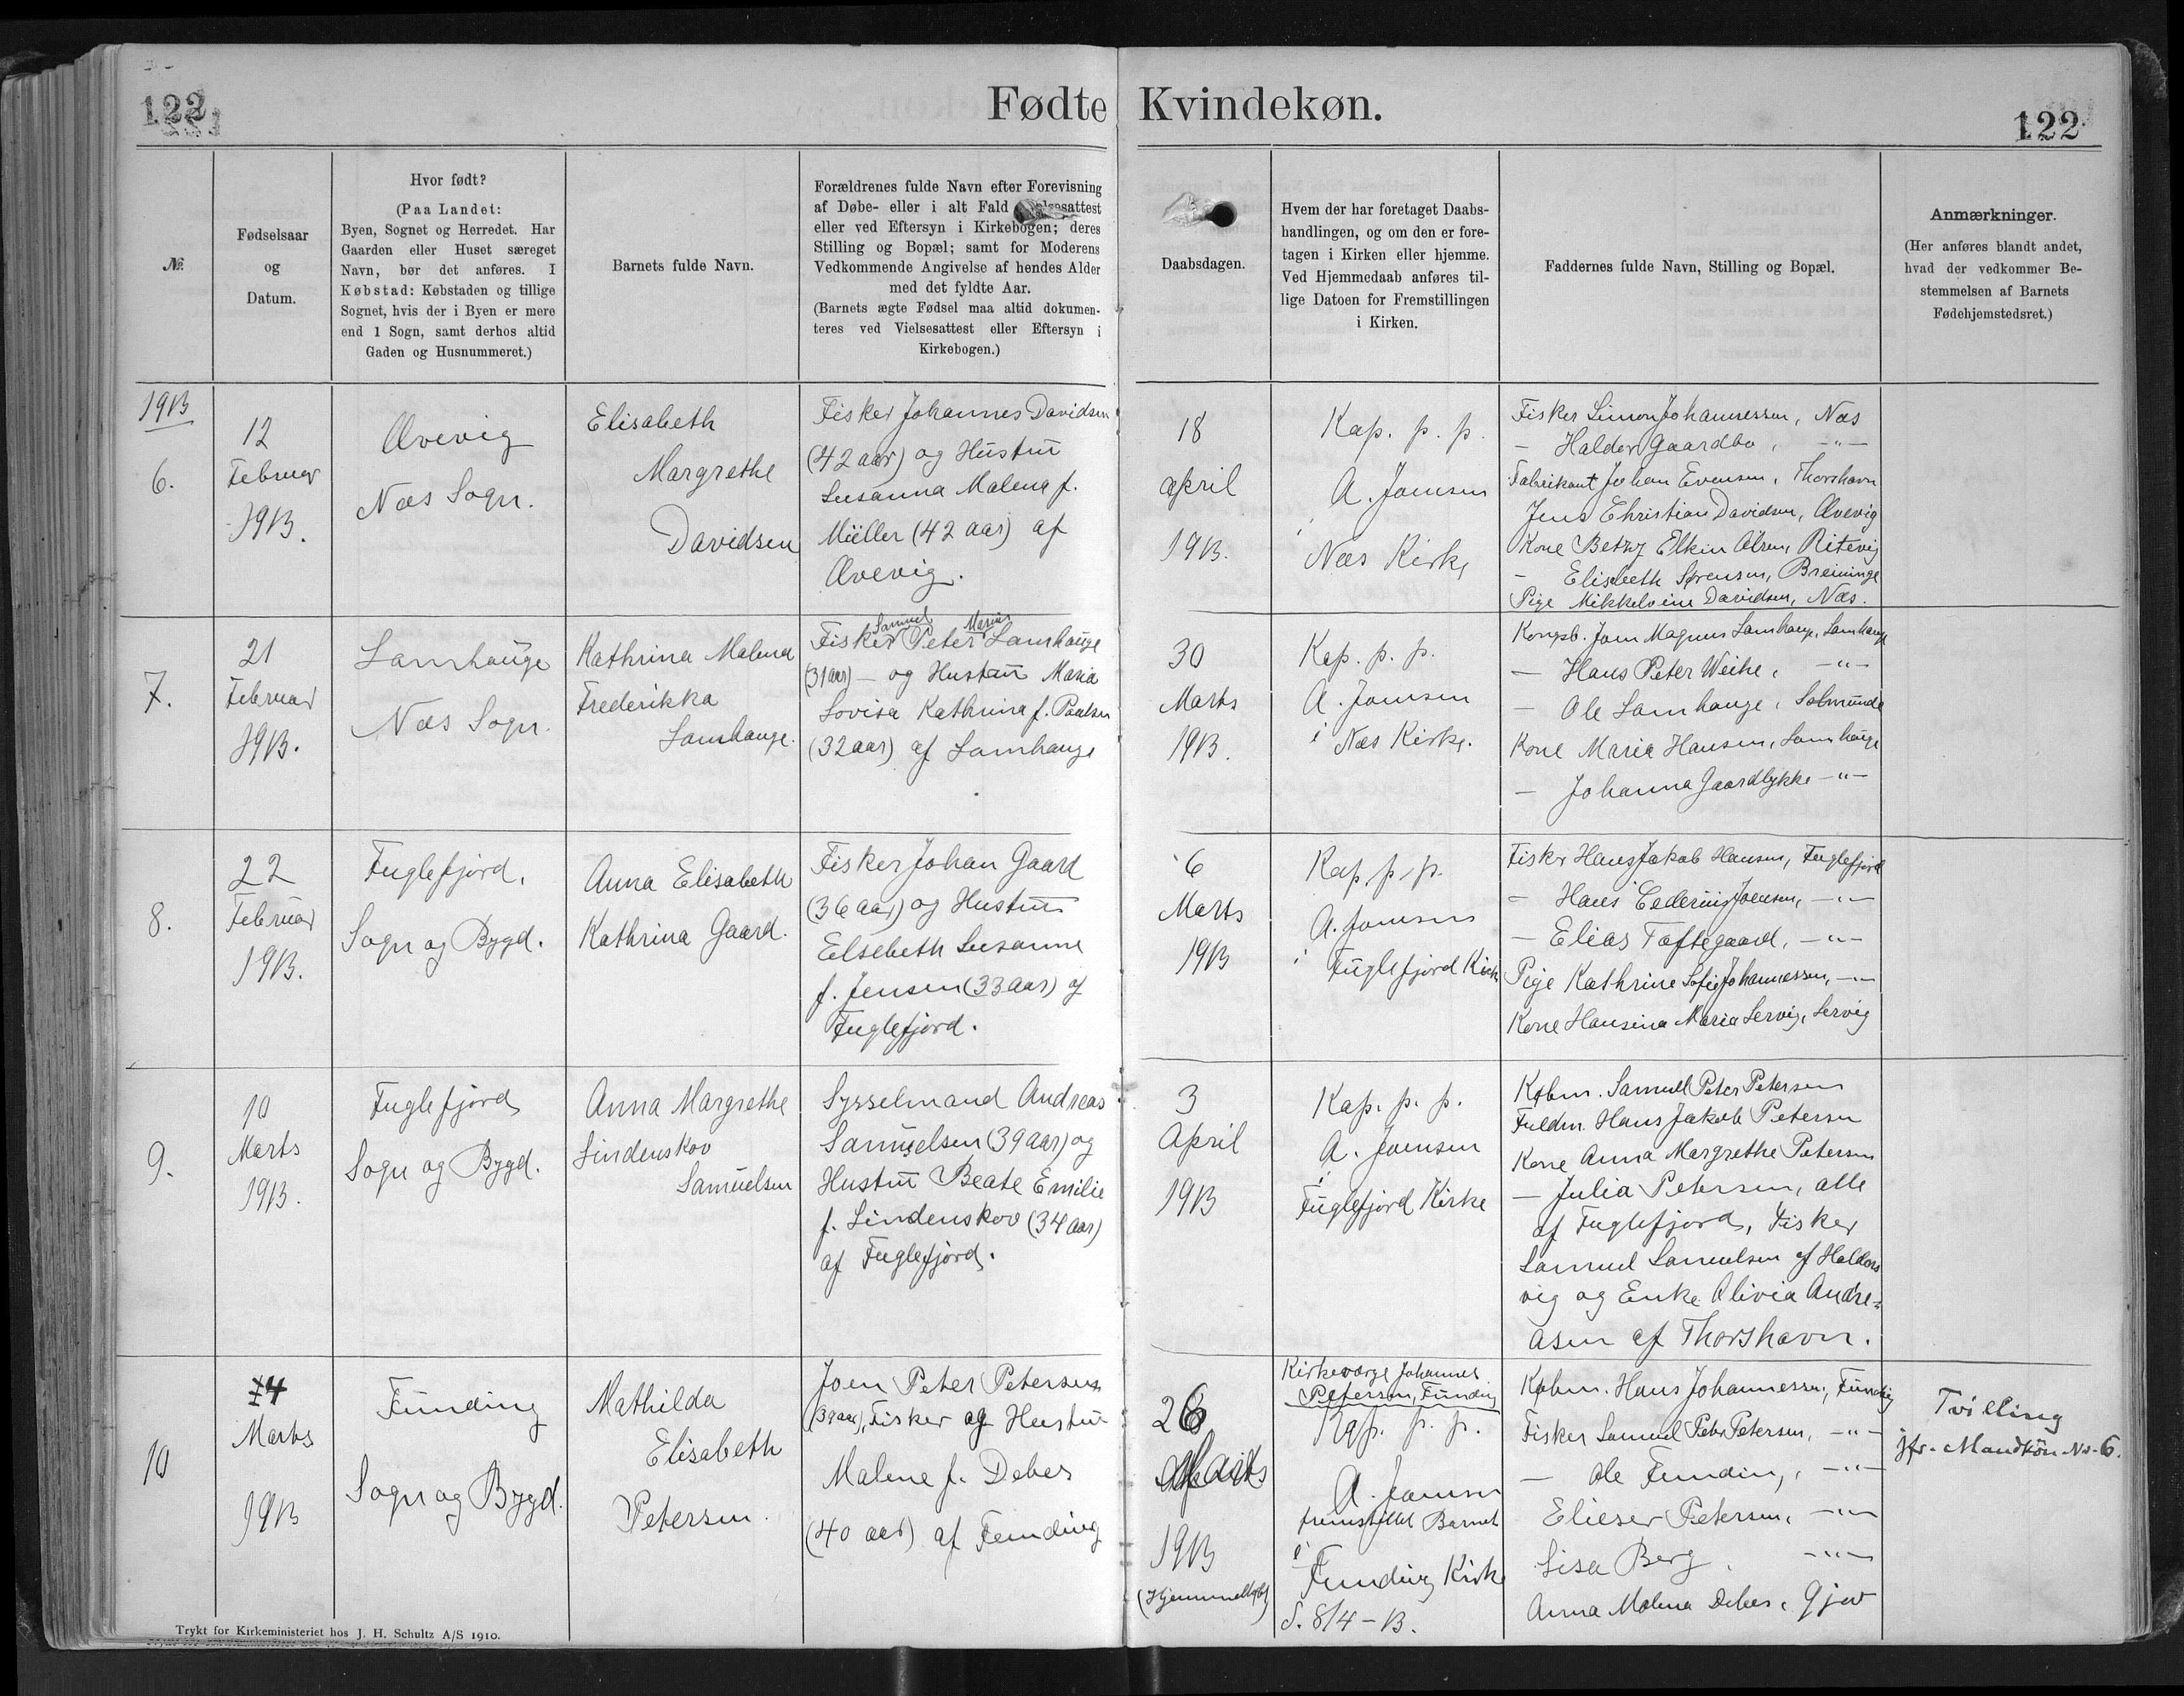 122
Fødte Kvindekøn.
122
№.
Fødselsaar
og
Datum.
Hvor født?
(Paa Landet:
Byen, Sognet og Herredet. Har
Gaarden eller Huset særeget
Navn, bør det anføres. I
Købstad: Købstaden og tillige
Sognet, hvis der i Byen er mere
end 1 Sogn, samt derhos altid
Gaden og Husnummeret.)
Barnets fulde Navn.
Forældrenes fulde Navn efter Forevisning
af Døbe- eller i alt Fald
eller ved Eftersyn i Kirkebogen; deres
Stilling og Bopæl; samt for Moderens
Vedkommende Angivelse af hendes Alder
med det fyldte Aar.
(Barnets ægte Fødsel maa altid dokumen-
teres ved Vielsesattest eller Eftersyn i
Kirkebogen.)
Daabsdagen.
Hvem der har foretaget Daabs-
handlingen, og om den er fore-
tagen i Kirken eller hjemme.
Ved Hjemmedaab anføres til-
lige Datoen for Fremstillingen
i Kirken.
Faddernes fulde Navn, Stilling og Bopæl.
Anmærkninger.
(Her anføres blandt andet,
hvad der vedkommer Be-
stemmelsen af Barnets
Fødehjemstedsret.)
1913
6.
12
Februar
1913.
Ævevig
Næs Sogn.
Elisabeth
Margrethe
Davidsen
Fisker Johannes Davidsen
(42 aar) og Hustru
Susanna Malena f.
Müller (42 aar) af
Ævevig.
18
april
1913.
Kap. p. p.
A. Joensen
i
Næs Kirke
Fisker Simon Johannessen, Næs
— Haldor Gaardbo, —"—
Fabrikant Johan Evensen, Thorshavn
Jens Christian Davidsen, Ævevig
Kone Betzy Elkin Olsen, Ritevig
— Elisbeth Sørensen,
Pige Mikkeloine Davidsen, Næs.
7.
21
Februar
1913.
Lamhauge
Næs Sogn.
Kathrina Malena
Frederikka
Lamhauge.
Samuel Marius
Fisker Peter Lamhauge
(31 aar) — og Hustru Maria
Lovisa Kathrina f. Poulsen
(32 aar) af Lamhauge
30
Marts
1913.
Kap. p. p.
A. Joensen
i Næs Kirke.
Kongsb. Joen Magnus Lamhauge, Lamhauge
— Hans Peter Weihe, —"—
— Ole Lamhauge, Solmunde
Kone Maria Hansen, Lamhauge
— Johanna Gaardlykke —"—
8.
22
Februar
1913.
Fuglefjord.
Sogn og Bygd.
Anna Elisabeth
Kathrina Gaard.
Fisker Johan Gaard
(36 aar) og Hustru
Elsebeth Susanne
f. Jensen (33 aar) af
Fuglefjord.
6
Marts
1913
Kap. p. p.
A. Joensen
i Fuglefjord Kirke
Fisker Hans Jakob Hansen, Fuglefjord
— Hans Joensen, —"—
— Elias Toftegaard, —"—
Pige Kathrine Sofie Johannessen, —"—
Kone Hansina Maria Lervig, Lervig
9.
10
Marts
1913.
Fuglefjord
Sogn og Bygd.
Anna Margrethe
Lindenskov
Samuelsen
Sysselmand Andreas
Samuelsen (39 aar) og
Hustru Beate Emilie
f. Lindenskov (34 aar)
af Fuglefjord.
3
April
1913
Kap. p. p.
A. Joensen
i
Fuglefjord Kirke
Købm. Samuel Peter Petersen
Fuldm. Hans Jakob Petersen
Kone Anna Margrethe Petersen
— Julia Petersen, alle
af Fuglefjord, Fisker
Samuel Samuelsen af Haldors
vig og Enke Olivia Andre-
asen af Thorshavn.
10
14
Marts
1913
Funding
Sogn og Bygd.
Mathilda
Elisabeth
Petersen.
Joen Peter Petersen
(39 aar), Fisker og Hustru
Malene f. Debes
(40 aar) af Funding
26
Marts
1913
(Hjemmedøbt)
Kirkeværge Johannes
Petersen, Funding
Kap. p. p.
A. Joensen
fremstillet Barnet
i
Funding Kirke
d. 8/4 - 13.
Købm. Hans Johannessen, Funding
Fisker Samuel Peter Petersen, —"—
— Ole Funding, —"—
Elieser Petersen, —"—
Lisa Berg, —"—
Anna Malena Debes, Gjov
Tvilling
jfr. Mandkön No. 6.
Trykt for Kirkeministeriet hos J. H. Schultz A/S 1910.